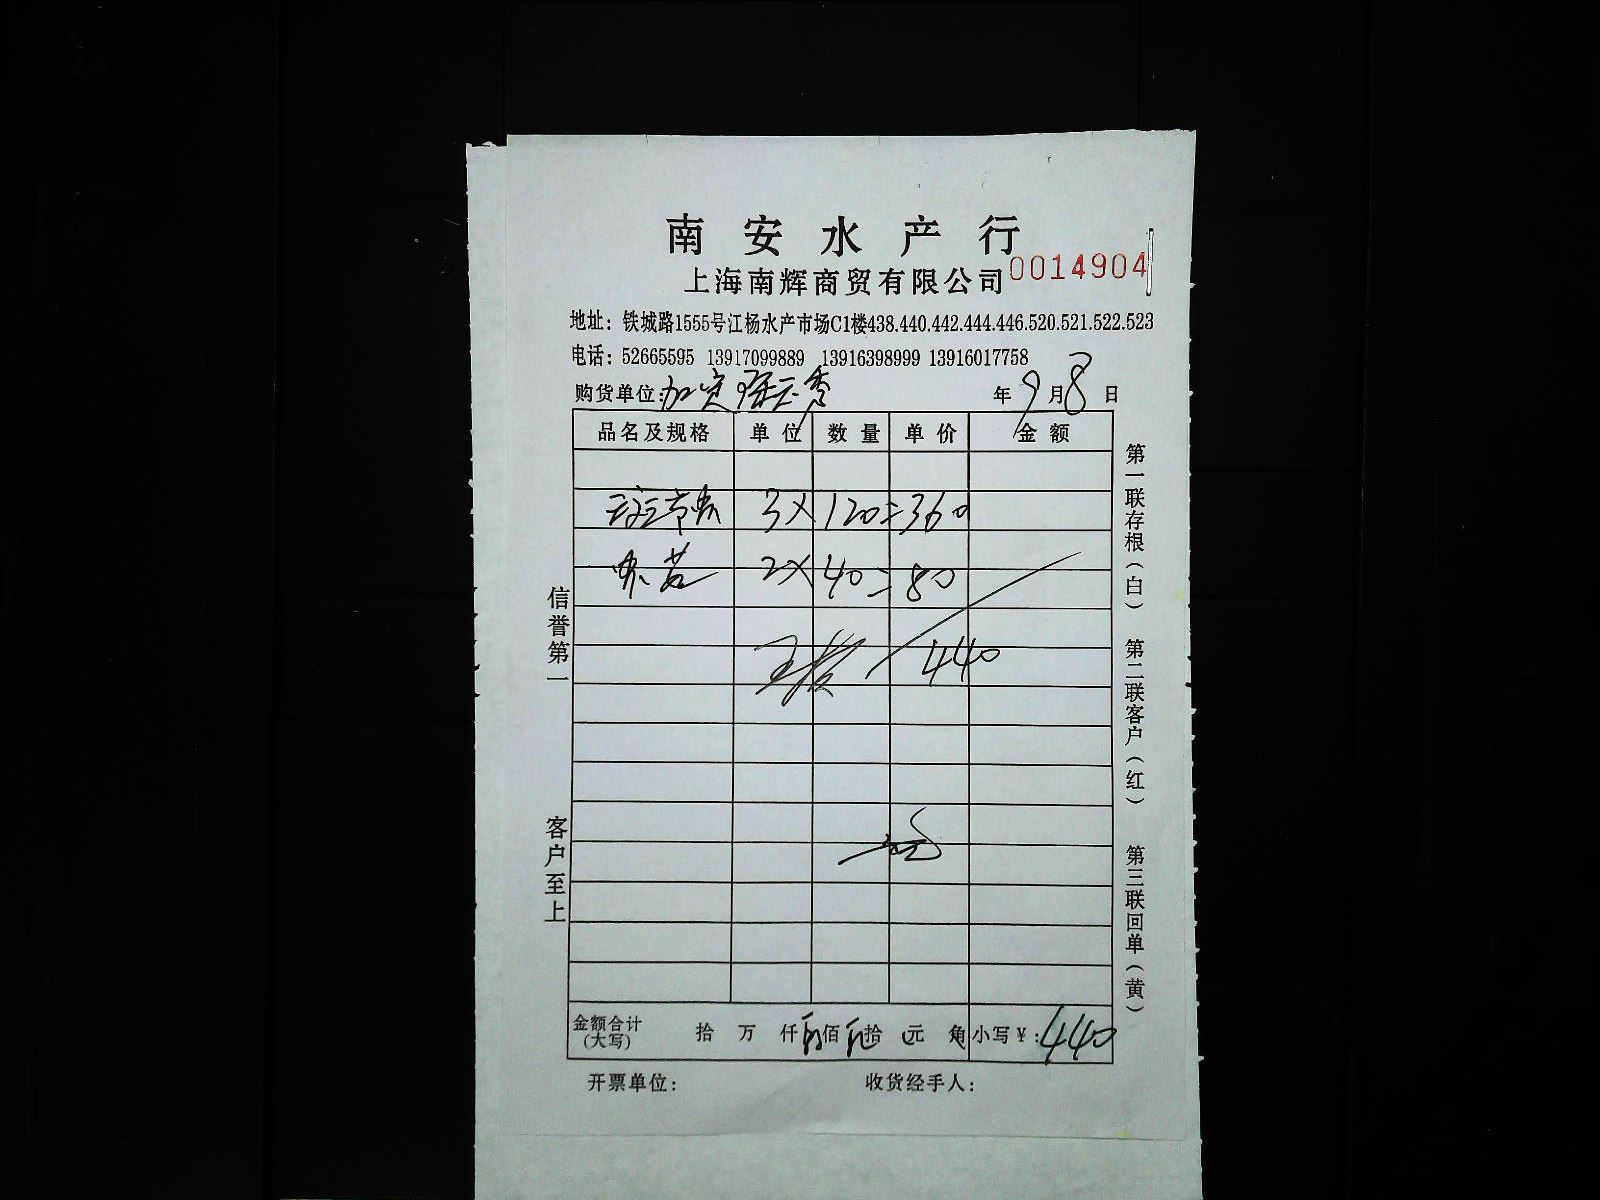 南安水产行
上海南辉商贸有限公司 0014904
地址：铁城路1555号江杨水产市场C1楼438.440.442.444.446.520.521.522.523
电话：52665595 13917099889 13916398999 13916017758
购货单位： 年 9 月 8 日
品名及规格 单位 数量 单价 金额
3× 120=360
2× 40=80
440
金额合计(大写) 拾 万 仟 佰 拾 元 角 小写￥：440
开票单位： 收货经手人：
信誉第一
客户至上
第一联存根（白）
第二联客户（红）
第三联回单（黄）